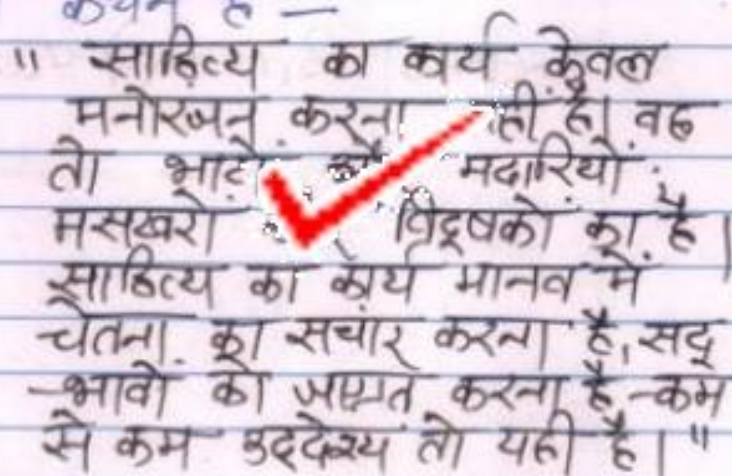 कथन है —
" साहित्य का कार्य केवल
मनोरंजन करना ही है। वह
तो भाटो मदारियों
मसखरो विदूषकों का है।
साहित्य का कार्य मानव में
चेतना का संचार करना है, सद्
-भावो को जाग्रत करना है -कम
से कम उद्देश्य तो यही है। "